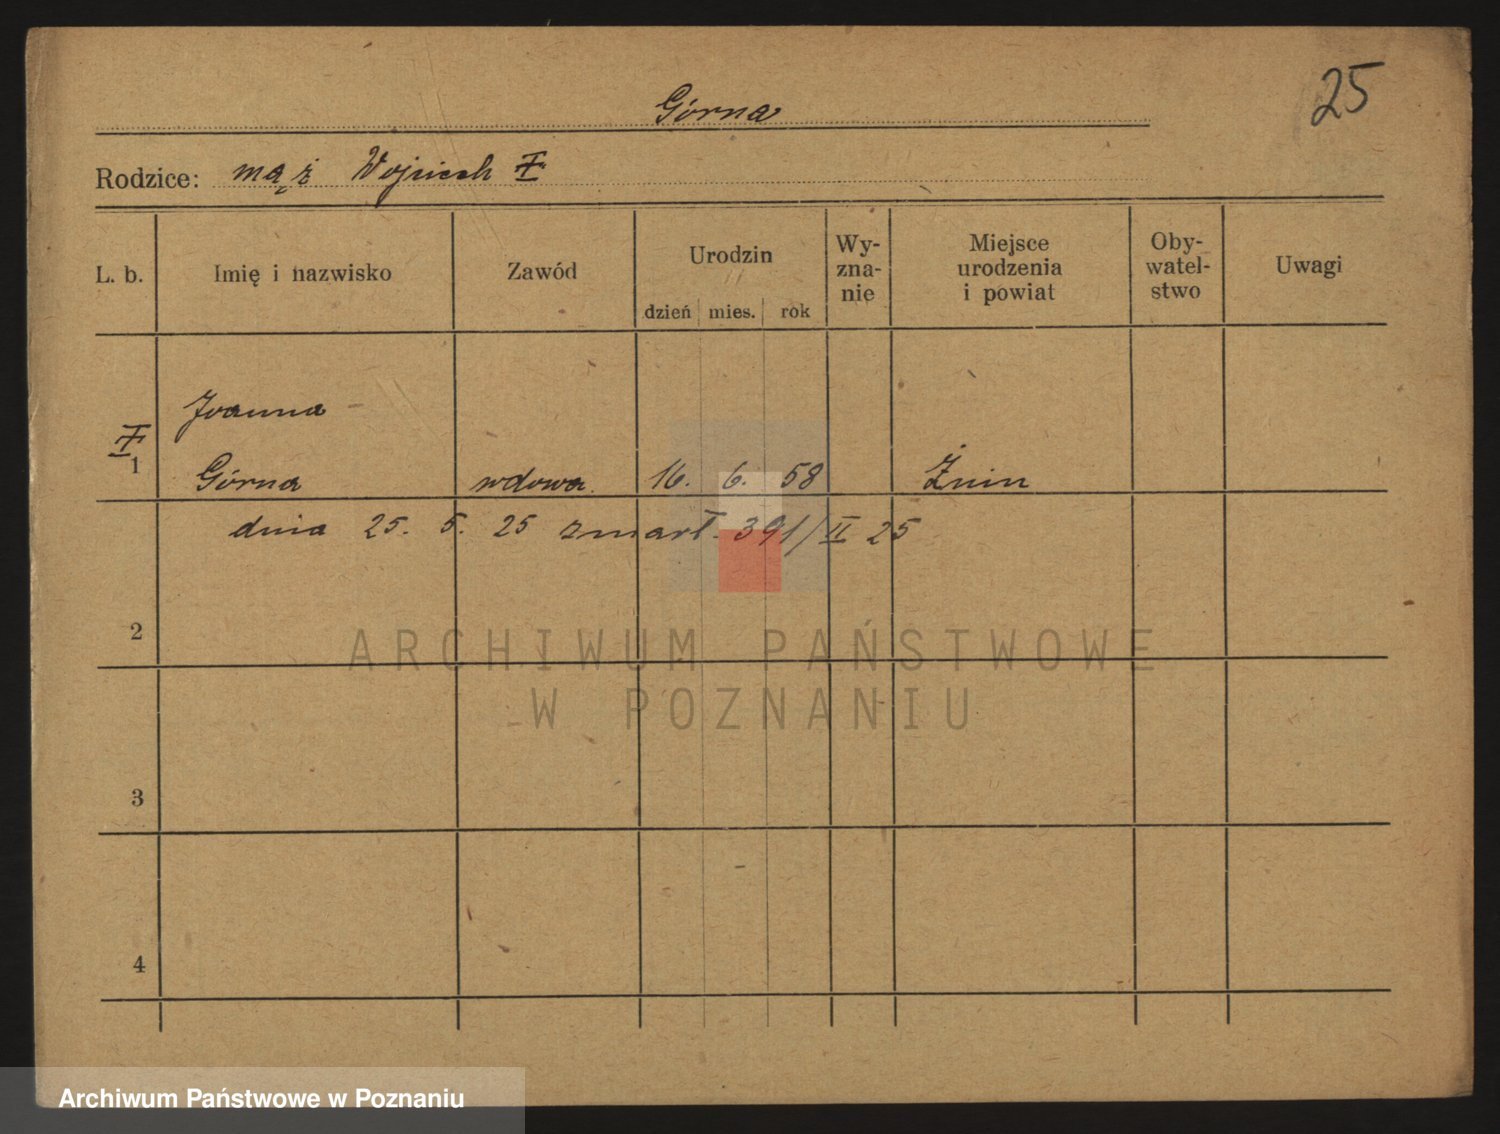 25
Górna
Rodzice: mąż Wojciech
L. b. Imię i nazwisko Zawód Urodzin dzień mies. rok Wy-zna-nie Miejsce urodzenia i powiat Oby-watel-stwo Uwagi
Joanna
1 Górna wdowa 16. 6. 58 Żnin
dnia 25. 5. 25 zmarł. 391/II 25
2
ARCHIWUM PAŃSTWOWE
W POZNANIU
3
4
Archiwum Państwowe w Poznaniu